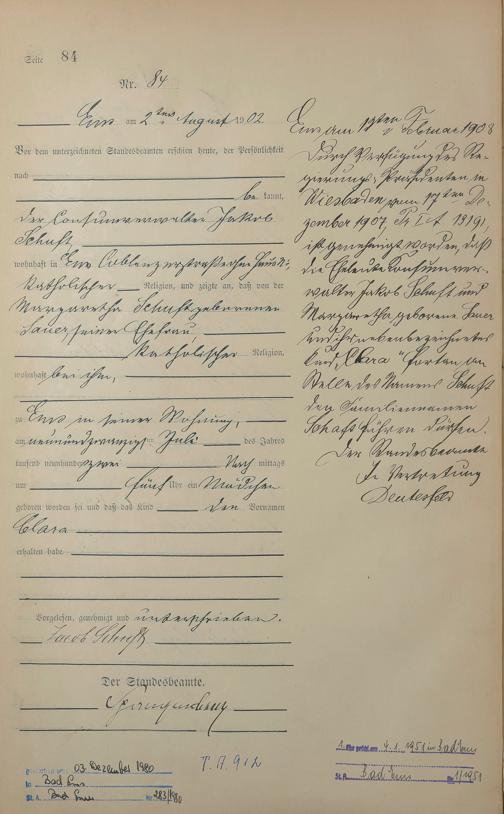 Seite 84
Nr. 84
Ems am 2ten August 1902
Vor dem unterzeichneten Standesbeamten erschien heute, der Persönlichkeit
nach
be kannt,
der Consumverwalter Jakob
Schuft,
wohnhaft in Ems Coblenzerstraße
katholischer Religion, und zeigte an, daß von der
Margaretha Schuft geborenen
Sauer, seiner Ehefrau
katholischer Religion,
wohnhaft bei ihm,
zu Ems in seiner Wohnung,
am neunundzwanzigsten Juli des Jahres
tausend neunhundert zwei Nach mittags
um fünf Uhr ein Mädchen
geboren worden sei und daß das Kind den Vornamen
Clara
erhalten habe
Vorgelesen, genehmigt und unterschrieben.
Jacob Schuft
Der Standesbeamte.
Ems am Februar 1908
Durch Verfügung des Re-
gierungs-Präsidenten in
Wiesbaden vom 17ten De-
zember 1907, Pr I A
ist genehmigt worden, daß
die Eheleute Consumver-
walter Jakob Schuft und
Margaretha geborene Sauer
und ihr nebenbezeichnetes
Kind "Clara" fortan an
Stelle des Namens Schuft
den Familiennamen
Schaft führen dürfen.
Der Standesbeamte
In Vertretung
03. Dezember 1980
in Bad Ems
St. A. Bad Ems Nr. 283/1980
T. A. 912
1. Ehe geschl. am 4.1.1951 in Bad Ems
St. A. Bad Ems Nr. 1/1951